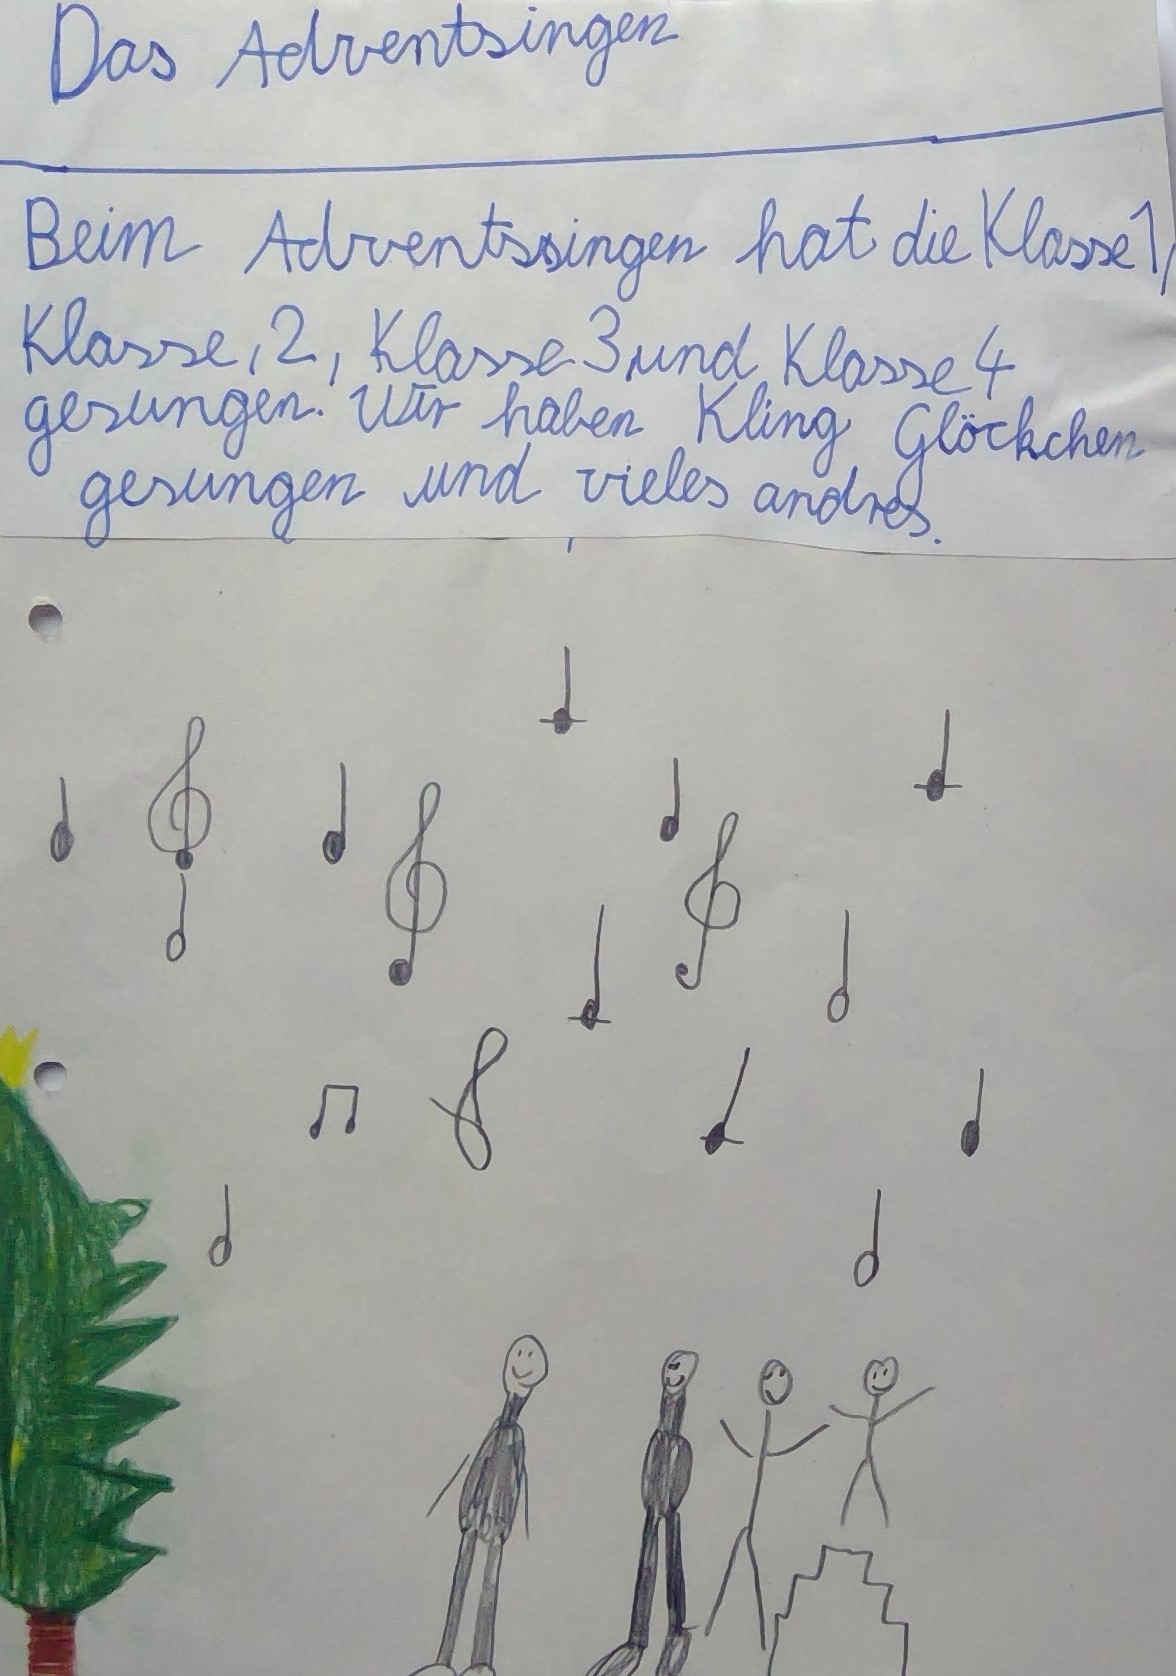 Das Adventsingen
Beim Adventssingen hat die Klasse 1,
Klasse, 2, Klasse 3 und Klasse 4
gesungen. Wir haben Kling Glöckchen
gesungen und vieles andres.